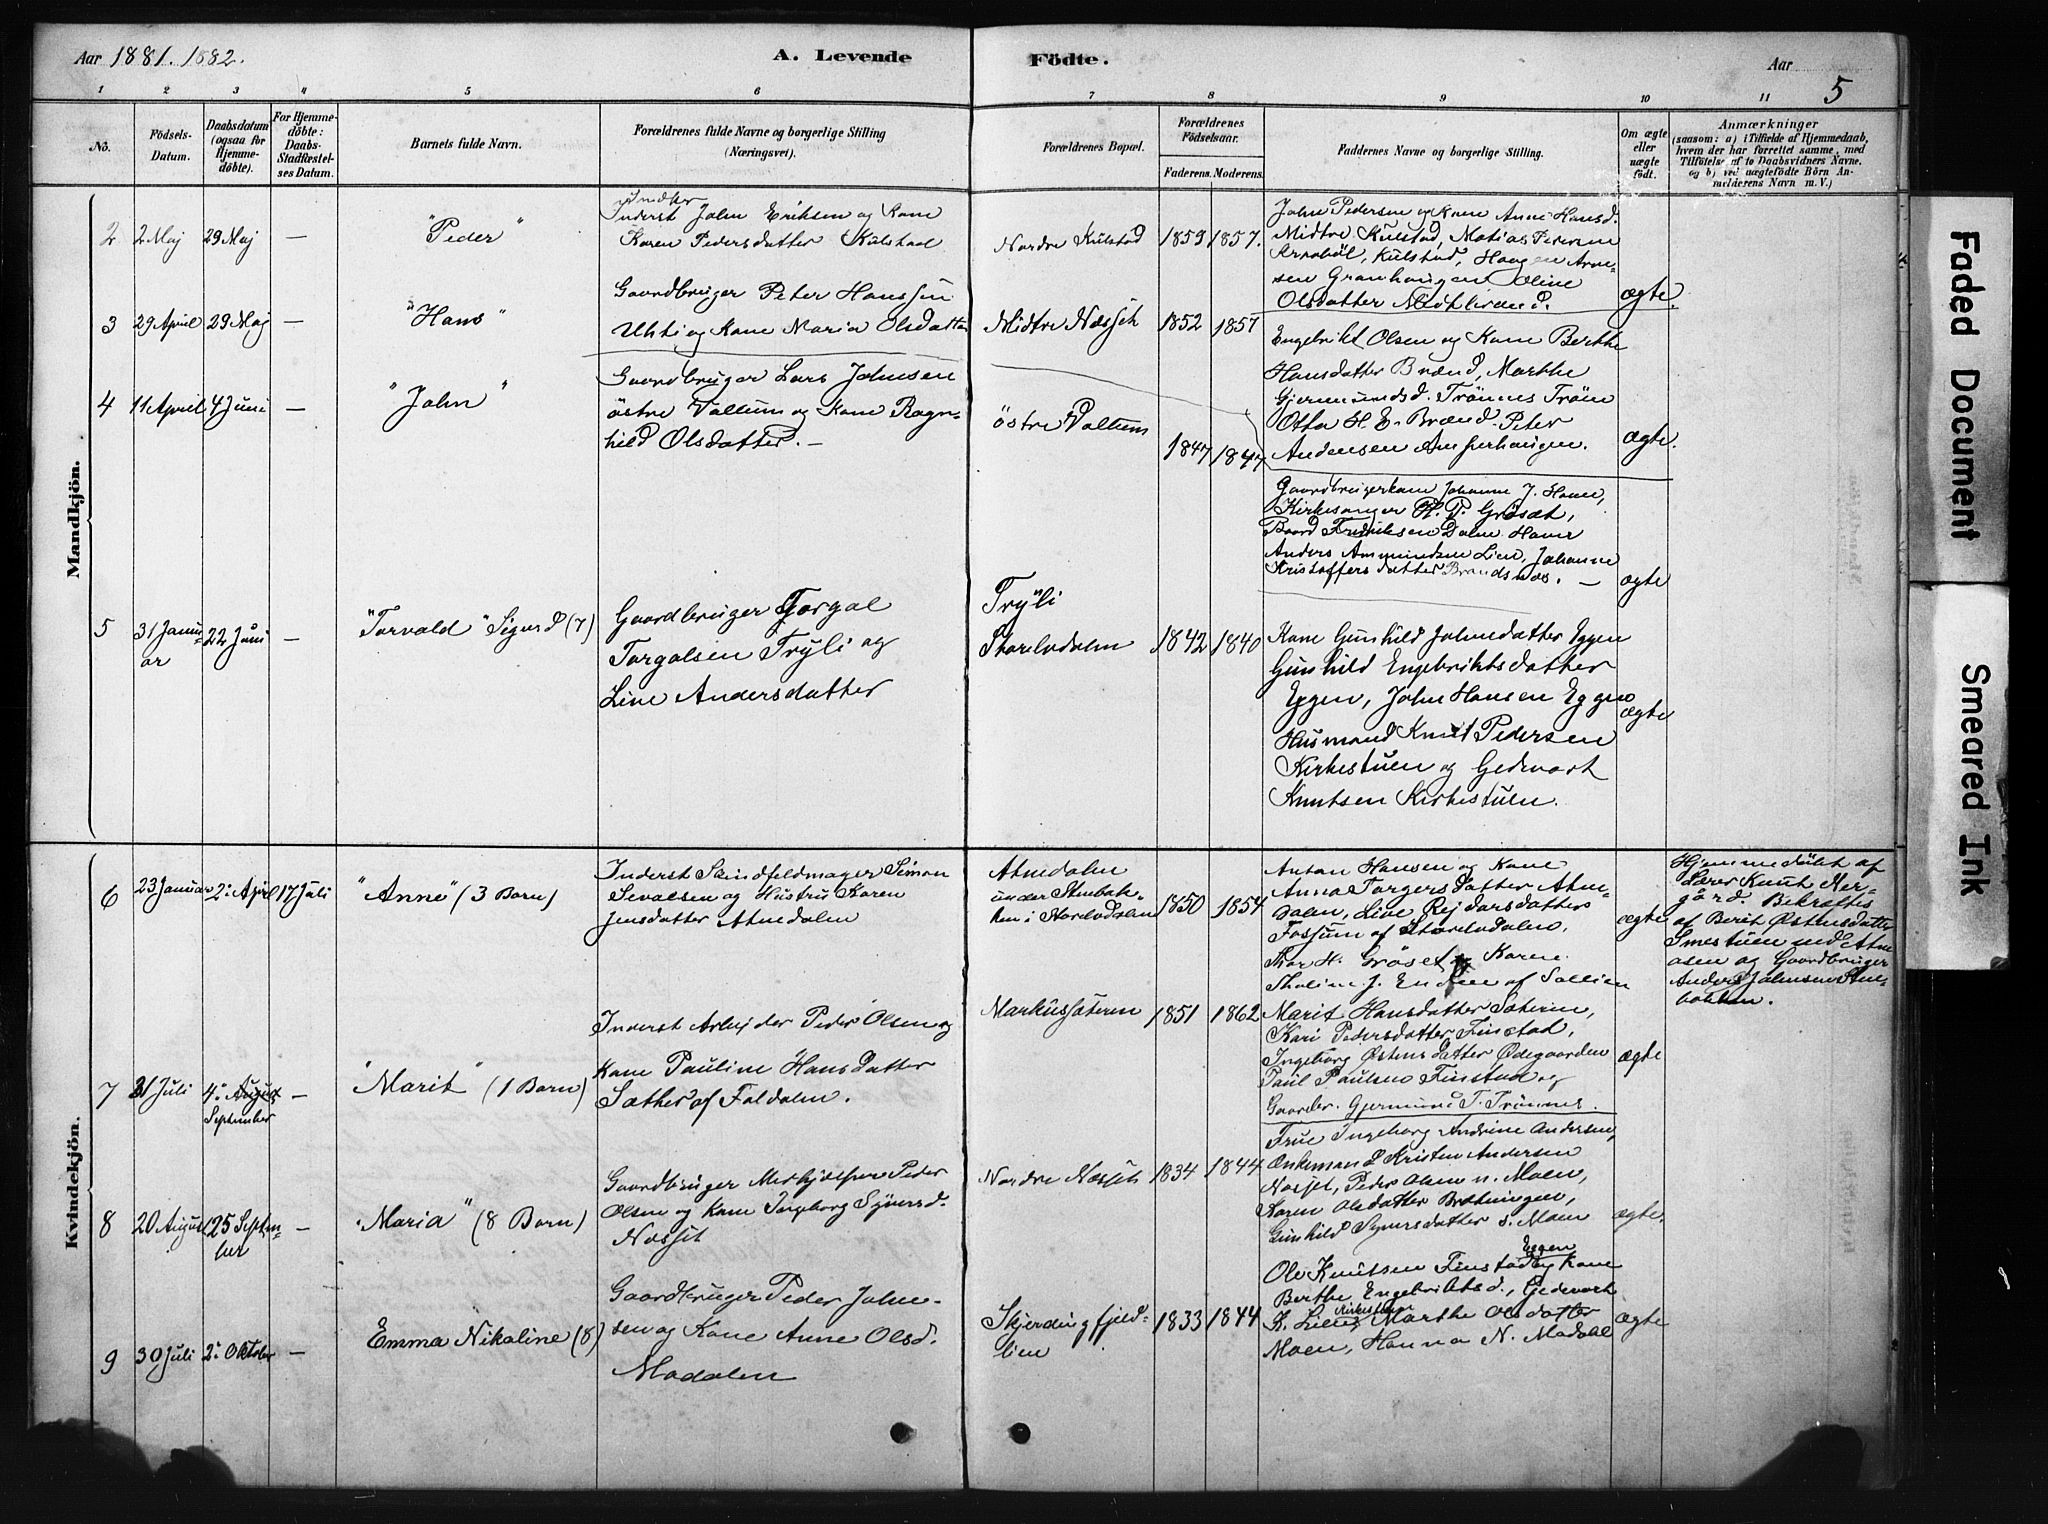 Aar 1881. 1882.
A. Levende
Födte.
Aar
5
1 2 3 4 5 6 7 8 9 10 11
No.
Födsels-
Datum.
Daabsdatum
(ogsaa for
Hjemme-
döbte).
For Hjemme-
döbte:
Daabs-
Stadfæstel-
ses Datum.
Barnets fulde Navn.
Forældrenes fulde Navne og borgerlige Stilling
(Næringsvei).
Forældrenes Bopæl.
Forældrenes
Födselsaar.
Faderens. Moderens.
Faddernes Navne og borgerlige Stilling.
Om ægte
eller
uægte
födt.
Anmærkninger
(saasom: a) i Tilfælde af Hjemmedaab,
hvem der har forrettet samme, med
Tilföielse af to Daabsvidners Navne,
og b) ved uægtefödte Börn An-
melderens Navn m. V.)
Mandkjön.
2 2 Maj 29 Maj — "Peder"
Inderst John Eriksen og Kone
Karen Pedersdatter Kulstad
Nordre Kulstad 1859 1857.
John Pedersen og Kone Anne Hansd.
Midtre Kulstad, Matias Pedersen
Kulstad, Haagen Arne-
sen Granhaugen Oline
Olsdatter
ægte.
3 29 April 29 Maj — "Hans"
Gaardbruger Peter Hanssen
og Kone Maria Olsdatter
Midtre Næsset 1852 1857
Engebrikt Olsen og Kone Berthe
Hansdatter Brænd, Marthe
Gjermundsd. Trönnes Tröen
Otto H. E. Brænd. Peter
Andersen
ægte.
4 11 April 4 Juni — "John"
Gaardbruger Lars Johnsen
östre Vollum og Kone Ragn-
hild Olsdatter. —
östre Vollum
1847 1847
Gaardbrugerkone Johanne J.
Kirkesanger H. P. Gröset,
Baard Fredriksen
Anders Ammundsen Lien, Johanne
Kristoffersdatter Brandsnæs. —
ægte
5 31 Janu-
ar
22 Juni — "Torvald" Sigurd (7)
Gaardbruger Torgal
Torgalsen Tryli og
Line Andersdatter
Tryli
Storelvdalen 1842 1840
Kone Gunhild Johnsdatter Eggen
Gunhild Engebriktsdatter
Eggen, John Hansen Eggen
Husmand Knut Pedersen
Kirkestuen og Gedevart
Knutsen Kirkestuen.
ægte
Kvindekjön.
6 23 Januar 2: April 17 Juli "Anne" (3 Barn)
Inderst Skindfeldmager Simon
Sevalsen og Hustru Karen
Jensdatter Atnedalen
Atnedalen
under Stenbak-
ken i Storelvdalen 1850 1854
Anton Hansen og Kone
Anna Torgersdatter Atne-
dalen, Live Rejdarsdatter
Fossum af Storelvdalen.
Thor H. Gröset og Karen
J. Enden af Sollien
ægte
Hjemmedöbt af
Lærer Knut Ner-
gård. Bekræftes
af Berit Østensdatter
Smestuen ved Atne-
osen og Gaardbruger
Anders Johnsen Sten-
bakken.
7 31 Juli 4: August
September
— "Marit" (1 Barn)
Inderst Arbejder Peder Olsen og
Kone Pauline Hansdatter
Sæther af Foldalen.
Markussæteren 1851 1862
Marit Hansdatter Sæteren,
Kari Pedersdatter Finstad,
Ingeborg Østensdatter Ødegaarden
Paul Paulsen Finstad og
Gaardbr. Gjermund T. Trönnes.
ægte
8 20 August 25 Septem-
ber
— "Maria" (8 Barn)
Gaardbruger Medhjælper Peder
Olsen og Kone Ingeborg Syversd.
Næsset
Nordre Næsset 1834 1844
Frue Ingeborg Andrine Andersen,
Enkemand Kristen Andersen
Næsset, Peder Olsen n. Moen,
Karen Olsdatter Brötningen,
Gunhild Syversdatter s. Moen
ægte.
9 30 Juli 2: Oktober — Emma Nikoline (8)
Gaardbruger Peder John-
sen og Kone Anne Olsd.
Modalen
Skjerdingfjeld-
lien
1833 1844
Ole Knutsen Finstad Eggen og Kone
Berthe Engebriktsd., Gedevart
K. Kirkestuen, Marthe Olsdatter
Moen, Hanna N. Modal
ægte
Faded Document
Smeared Ink